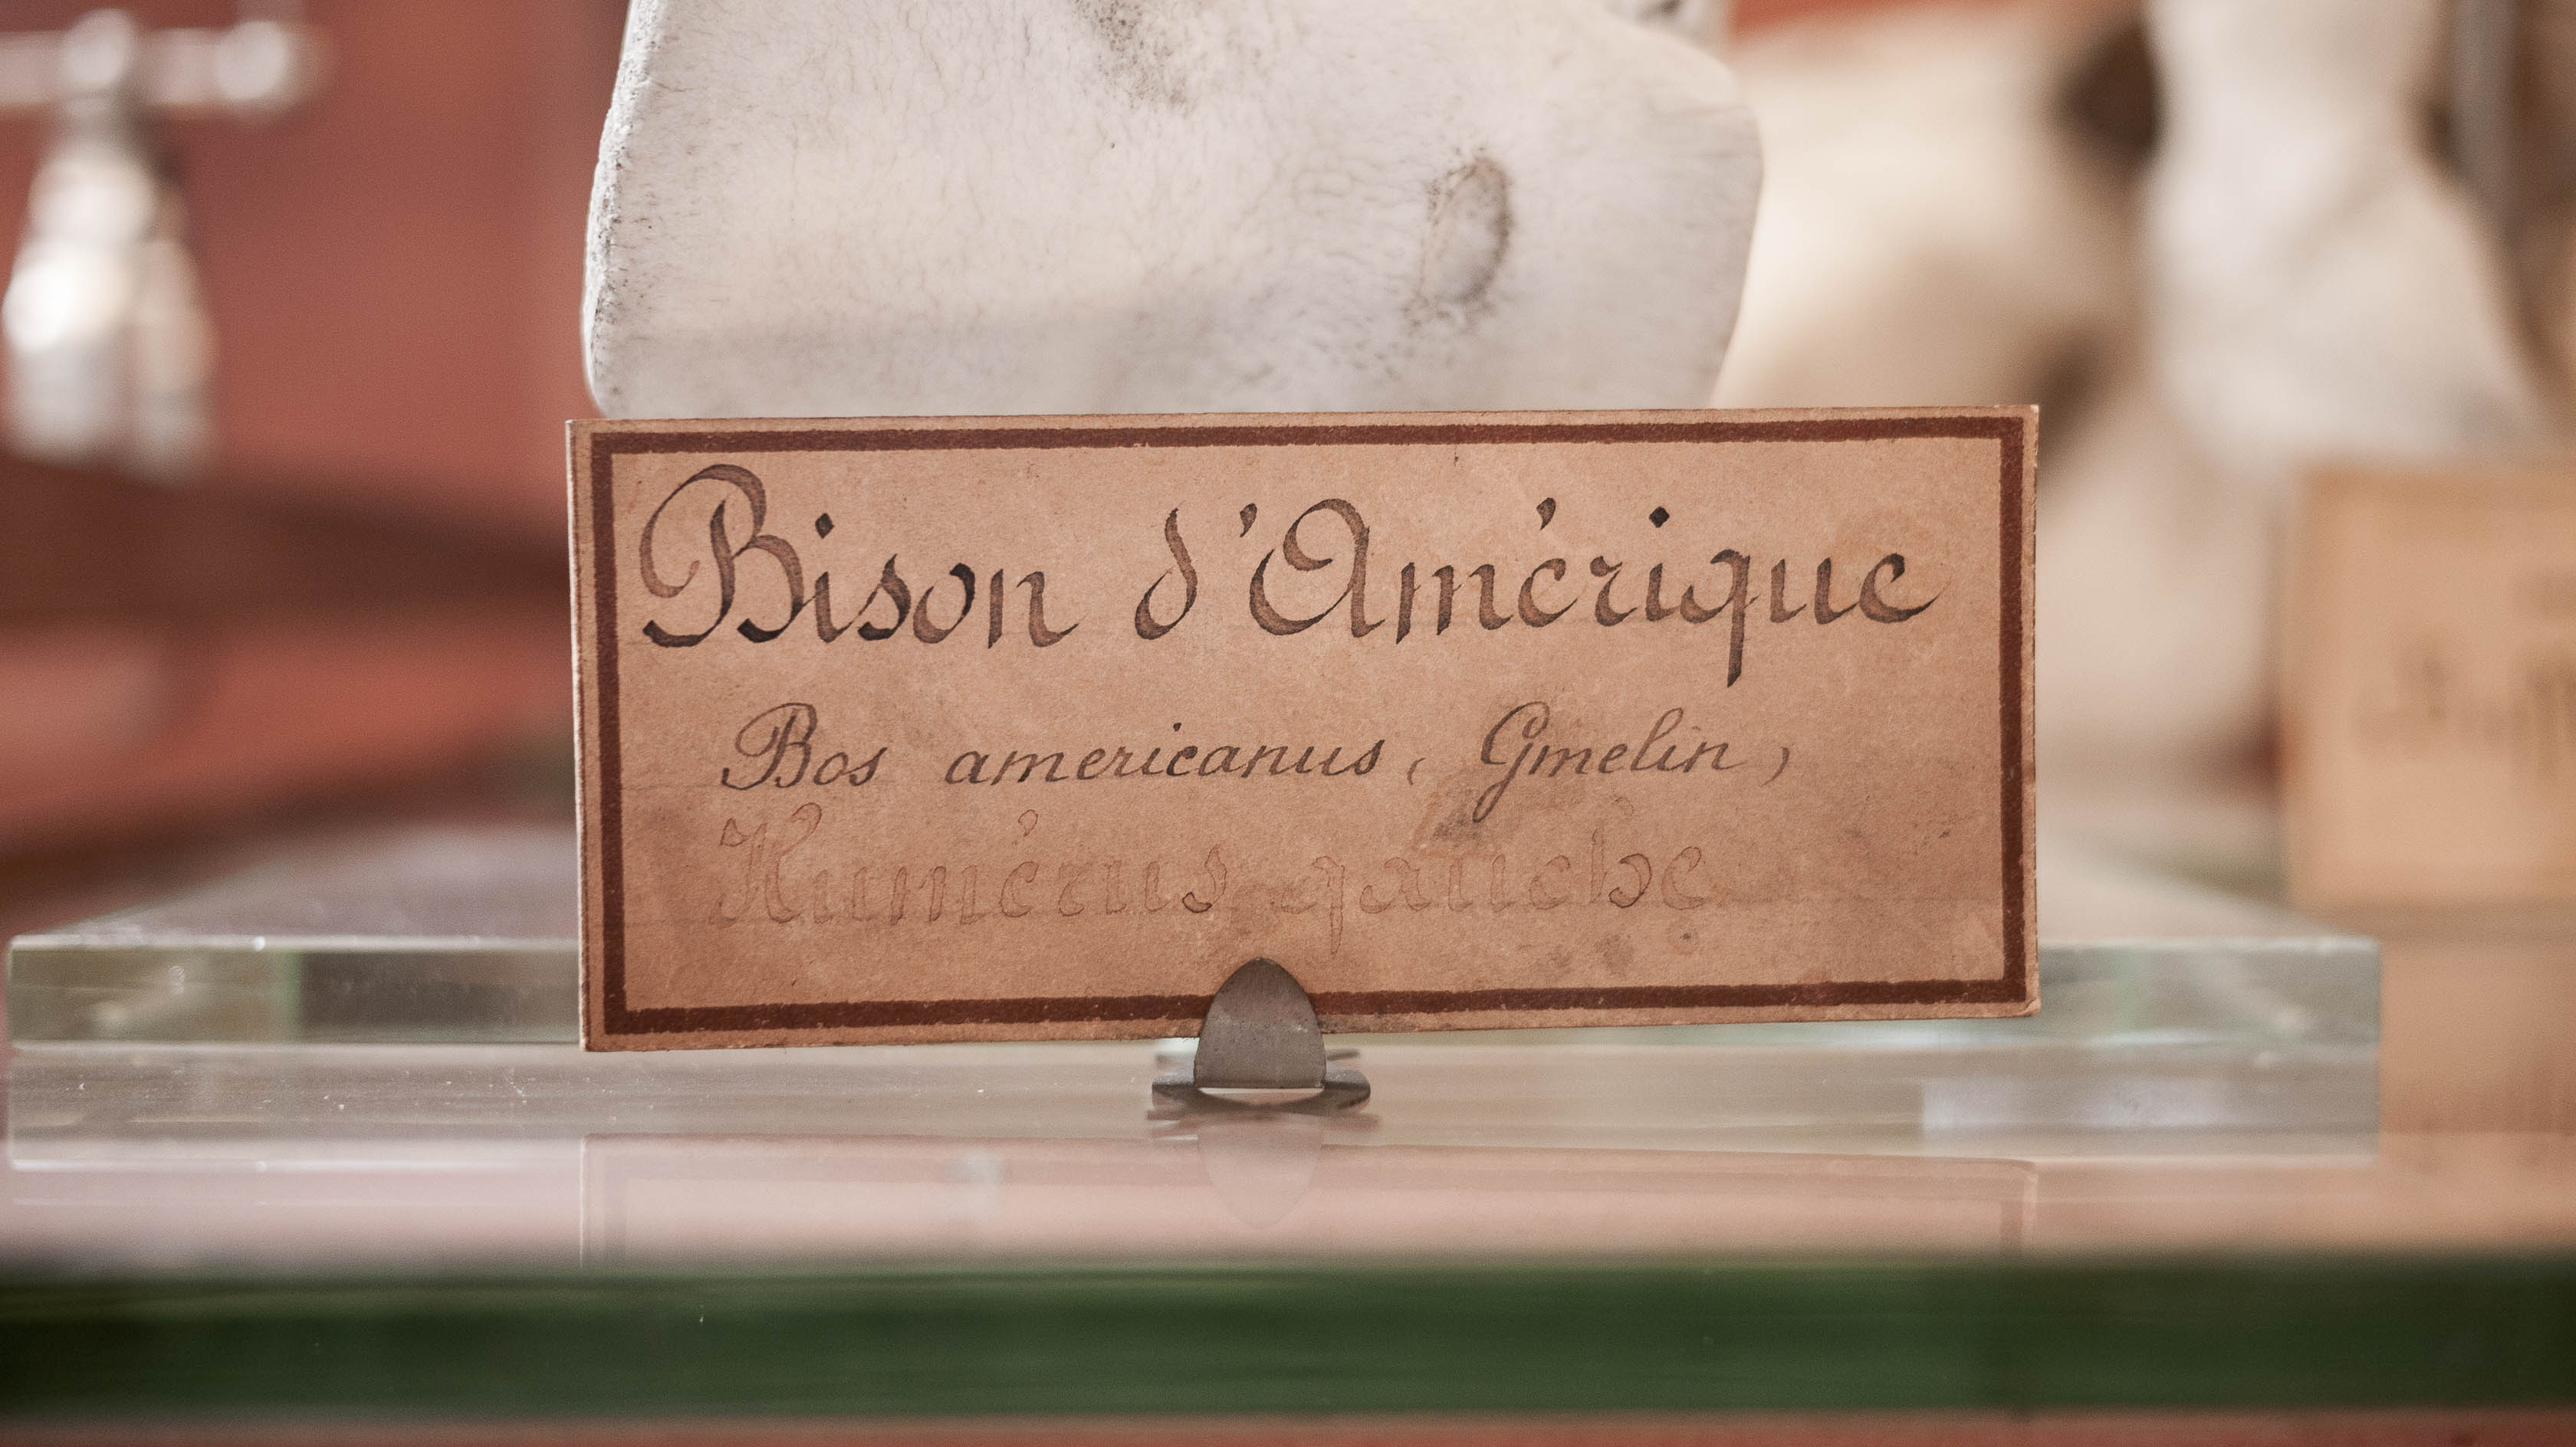 Bison d'Amérique
Bos americanus, (Gmelin,)
Humérus gauche